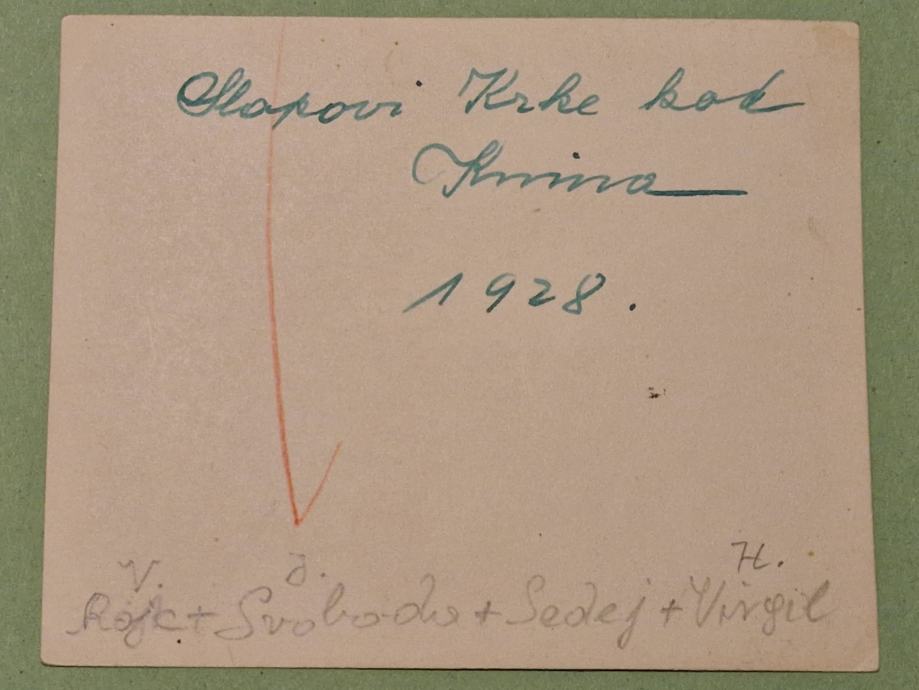 Slapovi Krke kod
Knina
1928.
V. J. H.
Rojc + Svoboda + Sedej + Virgil